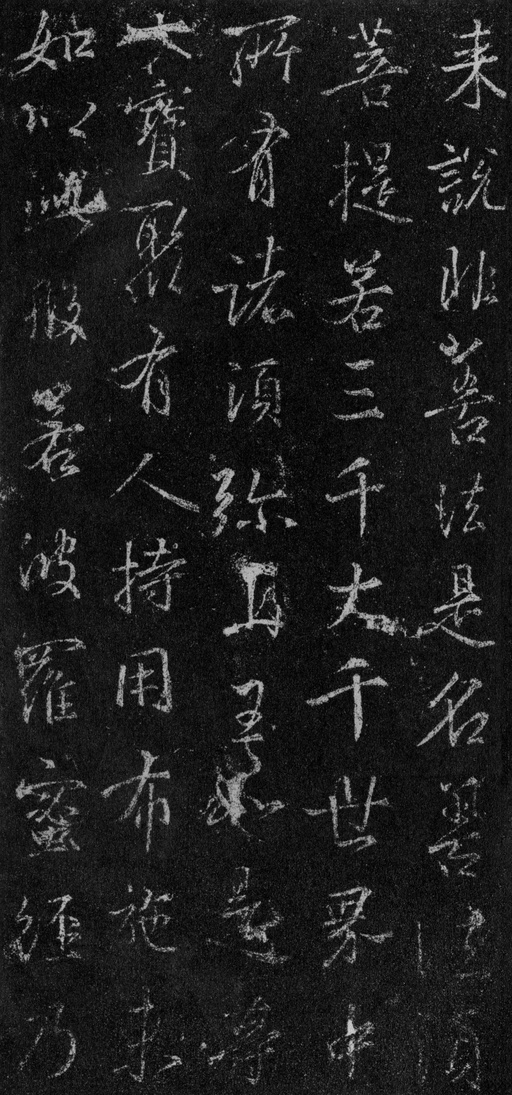 来說非善法是名善法須
菩提若三千大千世界中
所有諸須弥山王如是等
七寶聚有人持用布施
如以此般若波羅蜜經乃